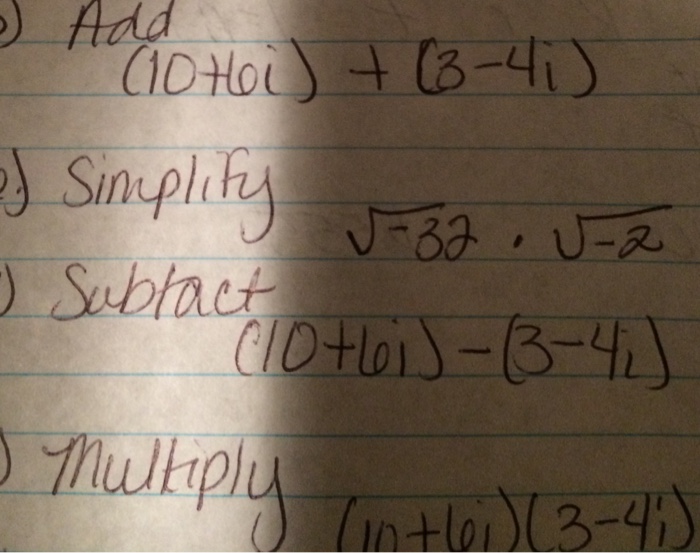 ) Add
(10+6i) + (3-4i)
e.) Simplify
√-32 · √-2
) Subtact
(10+6i) - (3-4i)
) Multiply
(10+6i)(3-4i)